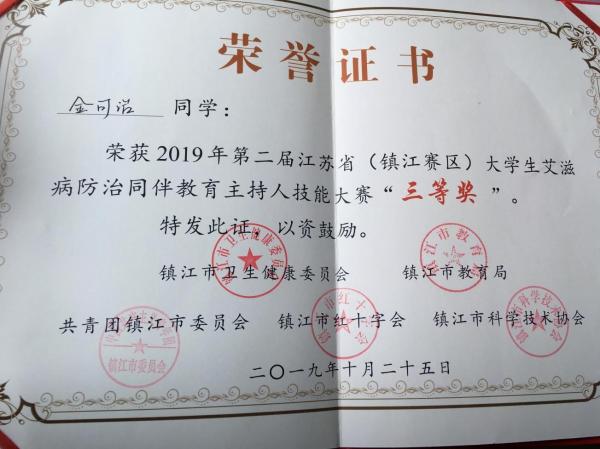 荣誉证书
金可治 同学：
荣获2019年第二届江苏省（镇江赛区）大学生艾滋
病防治同伴教育主持人技能大赛“三等奖”。
特发此证，以资鼓励。
镇江市卫生健康委员会 镇江市教育局
共青团镇江市委员会 镇江市红十字会 镇江市科学技术协会
二〇一九年十月二十五日
镇江市卫生健康委员会
镇江市教育局
镇江市委员会
镇江市红十字会